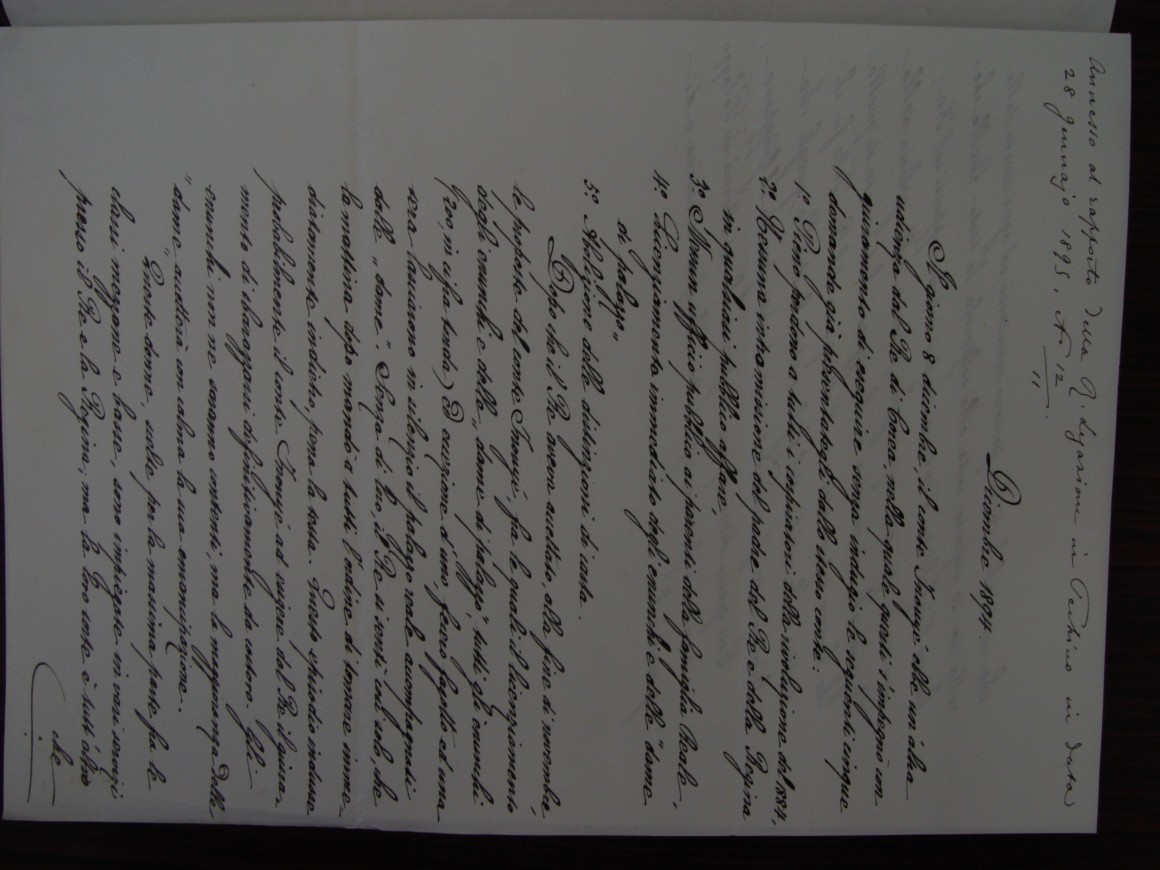 Annesso al rapporto della R. Legazione in Pechino in data
28 gennajo 1895, N. 12
11
Dicembre 1894.
Il giorno 8 dicembre, il conte Inouyé ebbe un'altra
udienza dal Re di Corea, nella quale questi s'impegnò con
giuramento di eseguire senza indugio le seguenti cinque
domande già presentategli dallo stesso conte:
1º Pieno perdono a tutti i cospiratori della rivoluzione del 1884,
2º Nessuna intromissione del padre del Re e della Regina
in qualsiasi pubblico affare,
3º Nessun ufficio pubblico ai parenti della famiglia Reale,
4º Licenziamento immediato degli eunuchi e delle "dame
di palazzo",
5º Abolizione delle distinzioni di casta.
Dopo che il Re aveva accettato, alla fine di novembre,
le proposte del conte Inouyé, fra le quali il licenziamento
degli eunuchi e delle "dame di palazzo", tutti gli eunuchi
(700, mi si fa) ed ognuna d'esse fecero fagotto ed una
sera lasciarono in silenzio il palazzo reale accompagnati
dalle "dame". Senza di loro, il Re si sentì così solo, che
la mattina dopo mandò a tutti l'ordine di tornare imme-
diatamente indietro, pena la testa. Questo episodio indusse
probabilmente il conte Inouyé ad esigere dal Re il giura-
mento di sbarazzarsi definitivamente da costoro. Gli
eunuchi non ne saranno contenti, ma la maggioranza delle
"dame" accetterà con calma la sua emancipazione.
Queste dame, scelte per la massima parte fra le
classi mezzane e basse, sono impiegate in varî servizî
presso il Re e la Regina, ma la loro sorte è tutt'altro
che